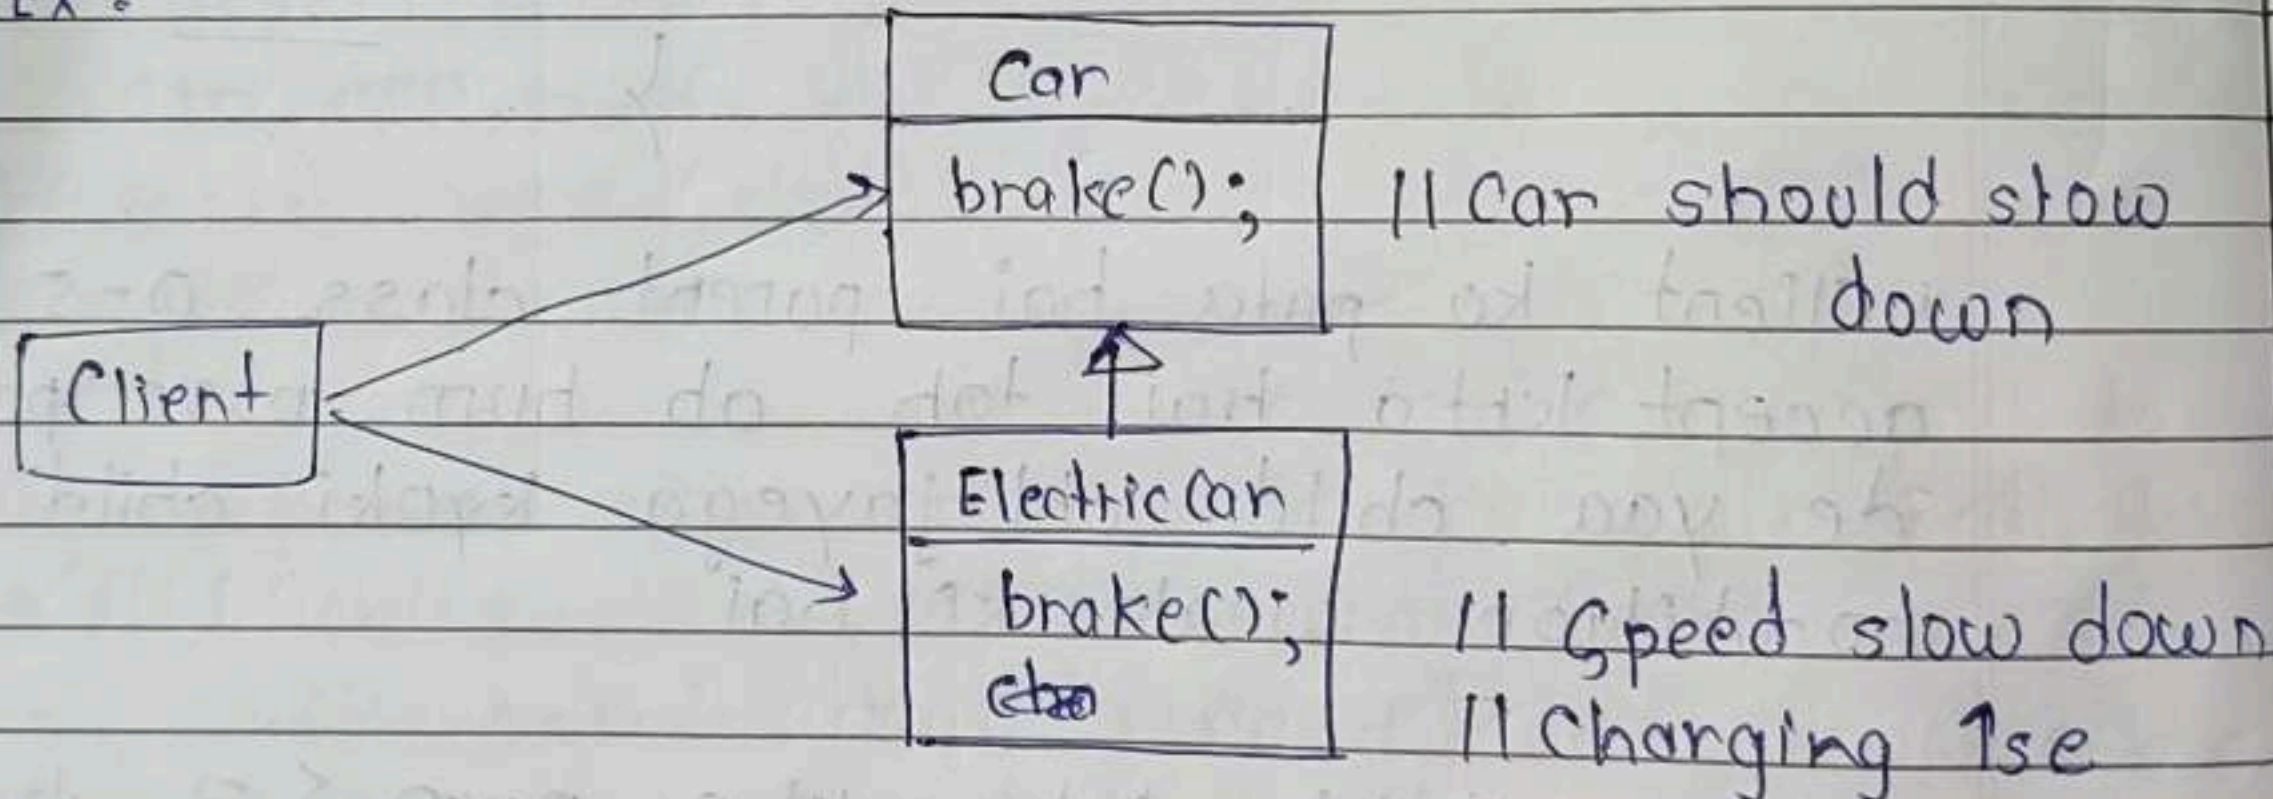 Ex :
Car
brake(); // Car should slow
down
Client
ElectricCar
brake(); // Speed slow down
// Charging ↑se